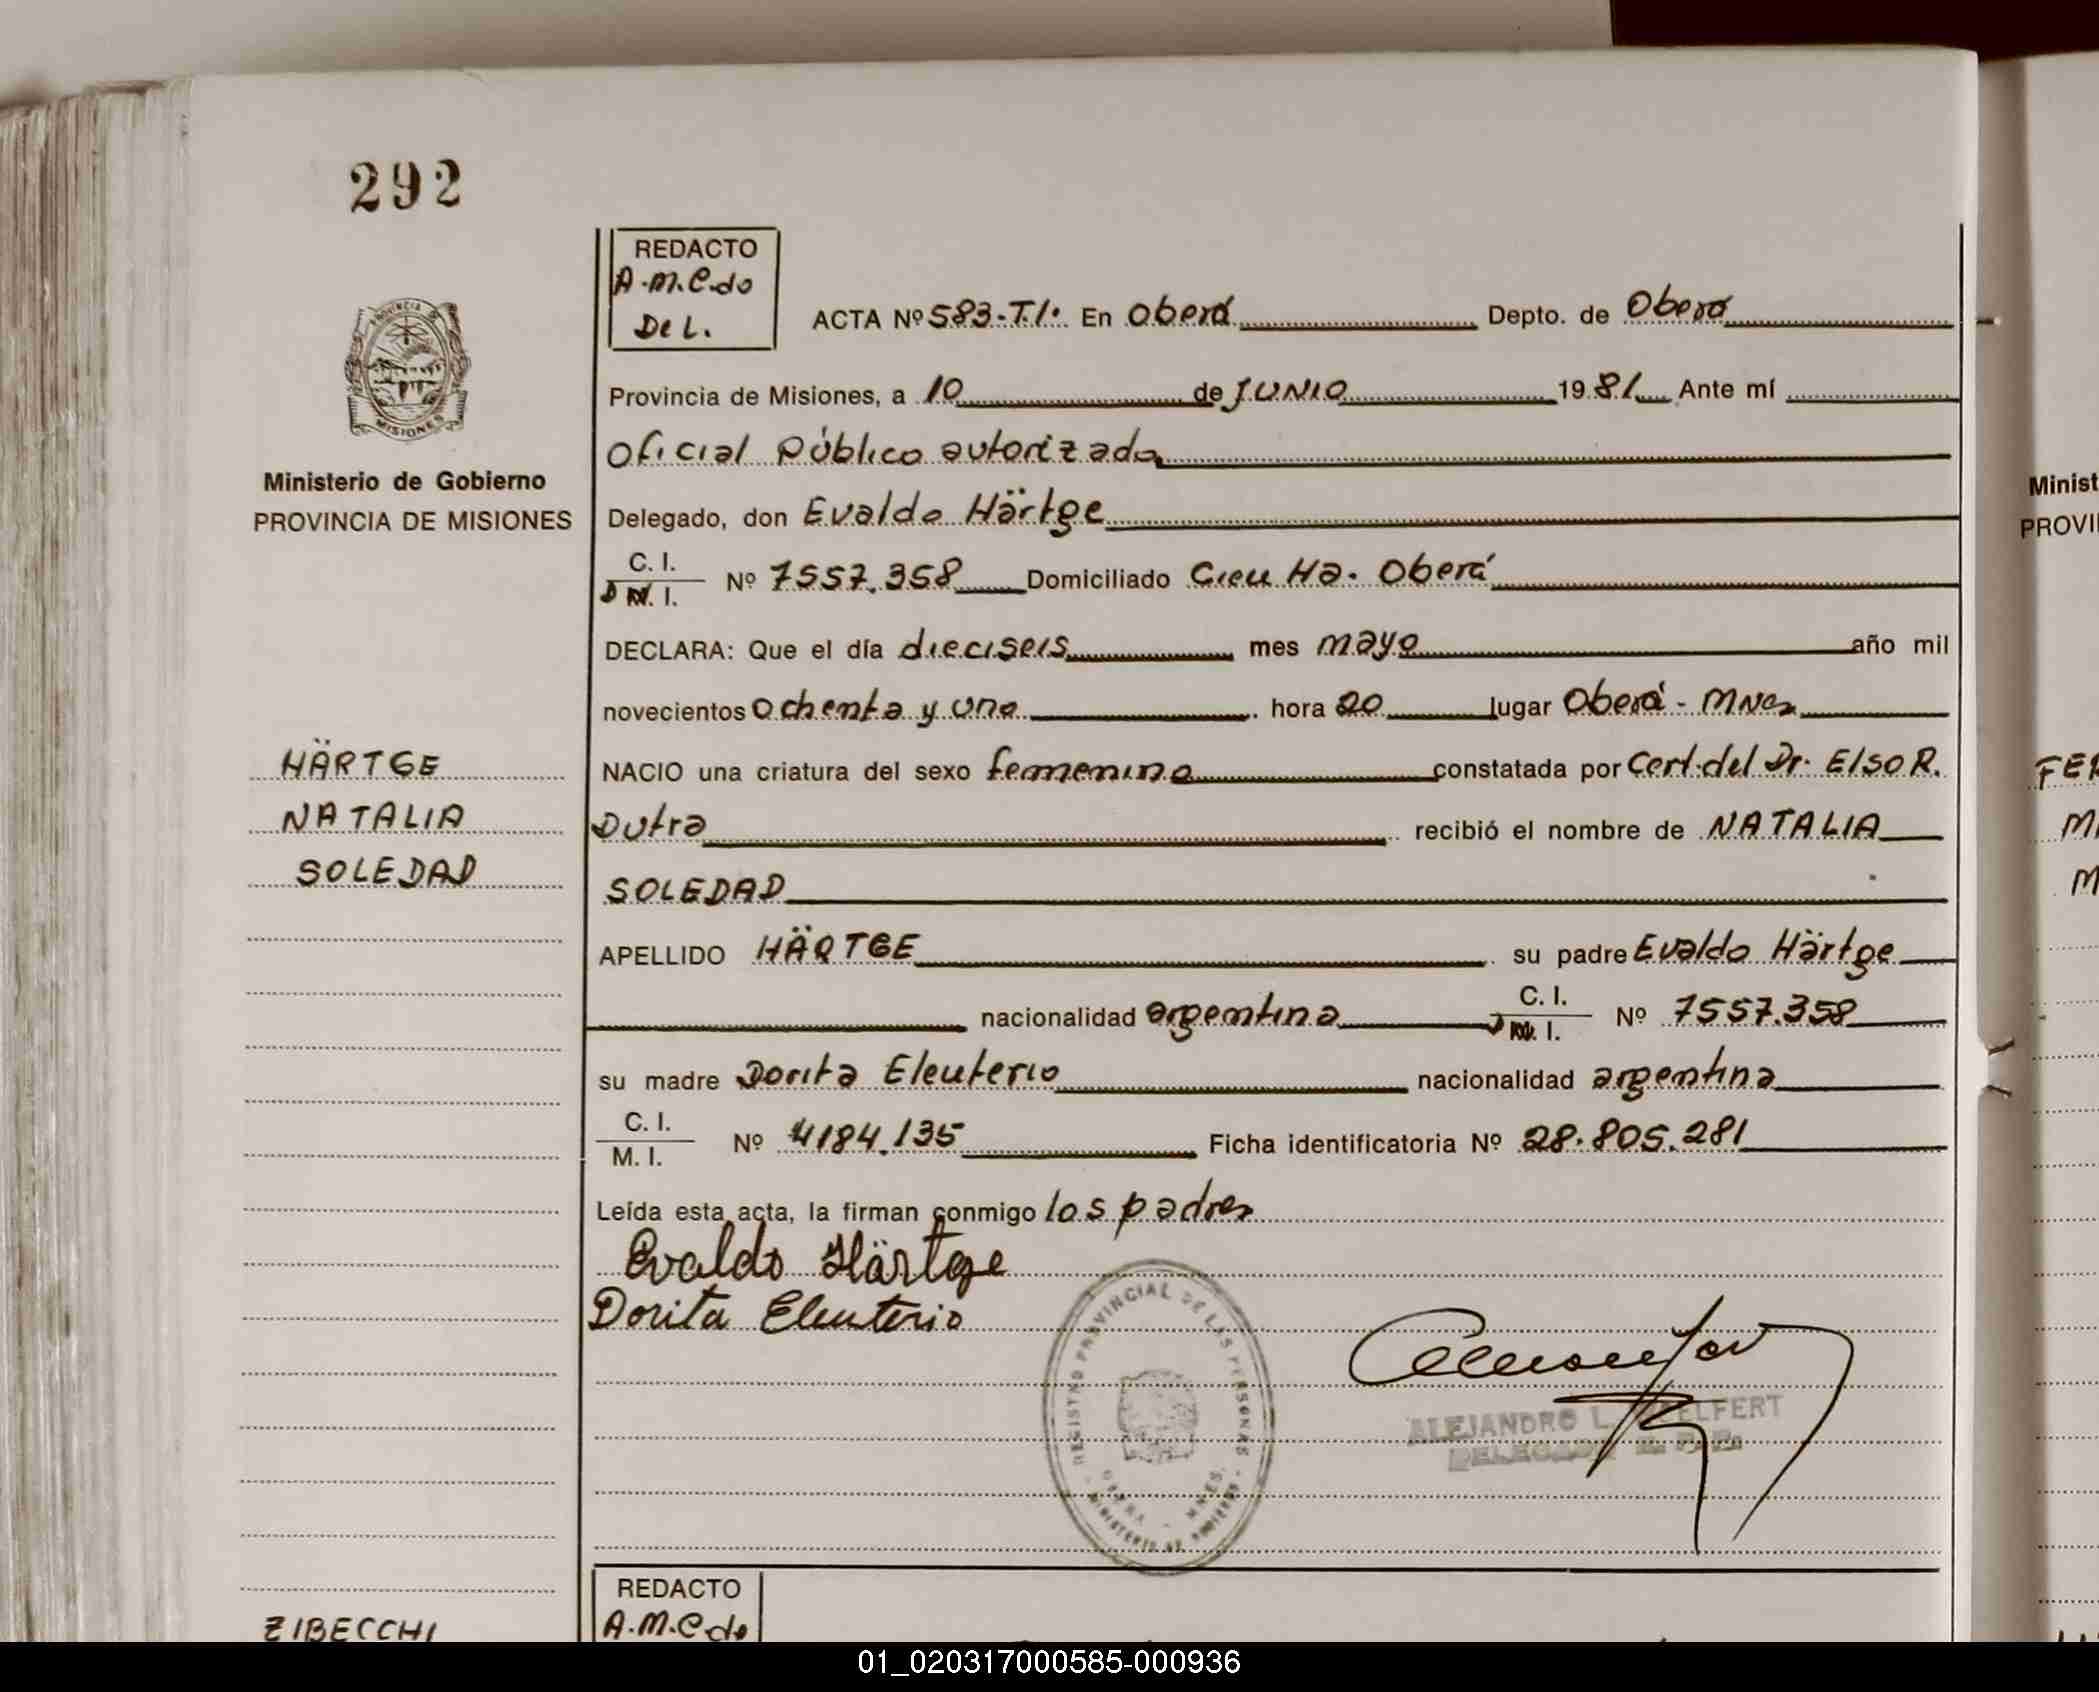 292
REDACTO
A.M.C.do
De L.
ACTA Nº 583-T.I. En Oberá Depto. de Oberá
Provincia de Misiones, a 10 de JUNIO 1981 Ante mí
Oficial Público autorizado
PROVINCIA DE MISIONES
Ministerio de Gobierno
PROVINCIA DE MISIONES
Delegado, don Evaldo Härtge
C. I.
D N. I. Nº 7557.358 Domiciliado Oberá
DECLARA: Que el día dieciseis mes mayo año mil
novecientos ochenta y uno hora 20 lugar Oberá - Mnes
HÄRTGE
NATALIA
SOLEDAD
NACIO una criatura del sexo femenino constatada por Cert. del Dr. Elso R.
Dutra recibió el nombre de NATALIA
SOLEDAD
APELLIDO HÄRTGE su padre Evaldo Härtge
nacionalidad argentina C. I. D N. I. Nº 7557.358
su madre Dorita Eleuterio nacionalidad argentina
C. I.
M. I. Nº 4184.135 Ficha identificatoria Nº 28.805.281
Leída esta acta, la firman conmigo los padres
Evaldo Härtge
Dorita Eleuterio
REGISTRO PROVINCIAL DE LAS PERSONAS
OBERA - MNES.
MINISTERIO DE GOBIERNO
ALEJANDRO L.
REDACTO
A.M.C.do
ZIBECCHI
Minist
PROVI
FER
M
M
01_020317000585-000936